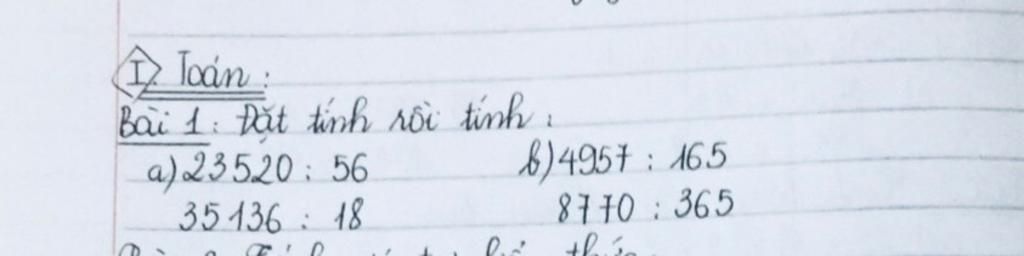 I. Toán:
Bài 1: Đặt tính rồi tính:
a) 23520 : 56 b) 4957 : 165
35136 : 18 8770 : 365